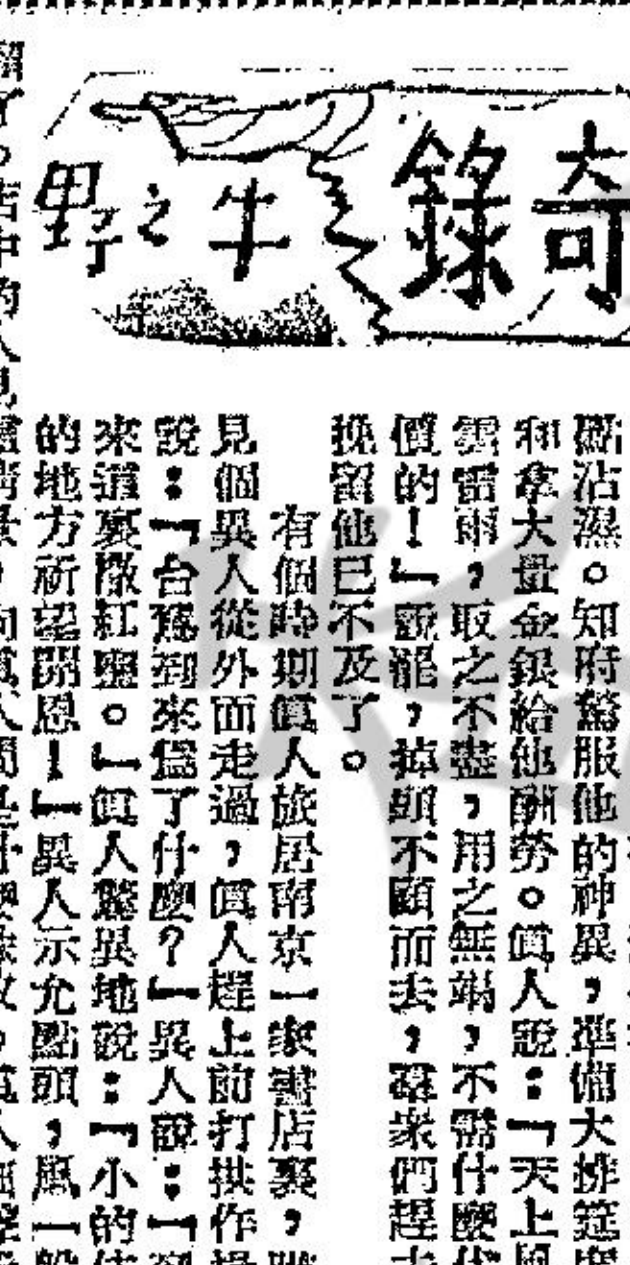 奇錄
牛之野
點沾濕。知府驚服他的神異，準備大排筵席
和拿大量金銀給他酬勞。真人說：「天上風
雲雷雨，取之不盡，用之無竭，不需什麼代
價的！」說罷，掉頭不顧而去，羣衆們趕去
挽留他已不及了。
有個時期真人旅居南京一家書店裏，
見個異人從外面走過，真人趕上前打拱作揖
說：「台駕到來爲了什麼？」異人說：「
來道裏撒紅鹽。」真人驚異地說：「小的
的地方祈望開恩！」異人示允點頭，風一般
店中的人見